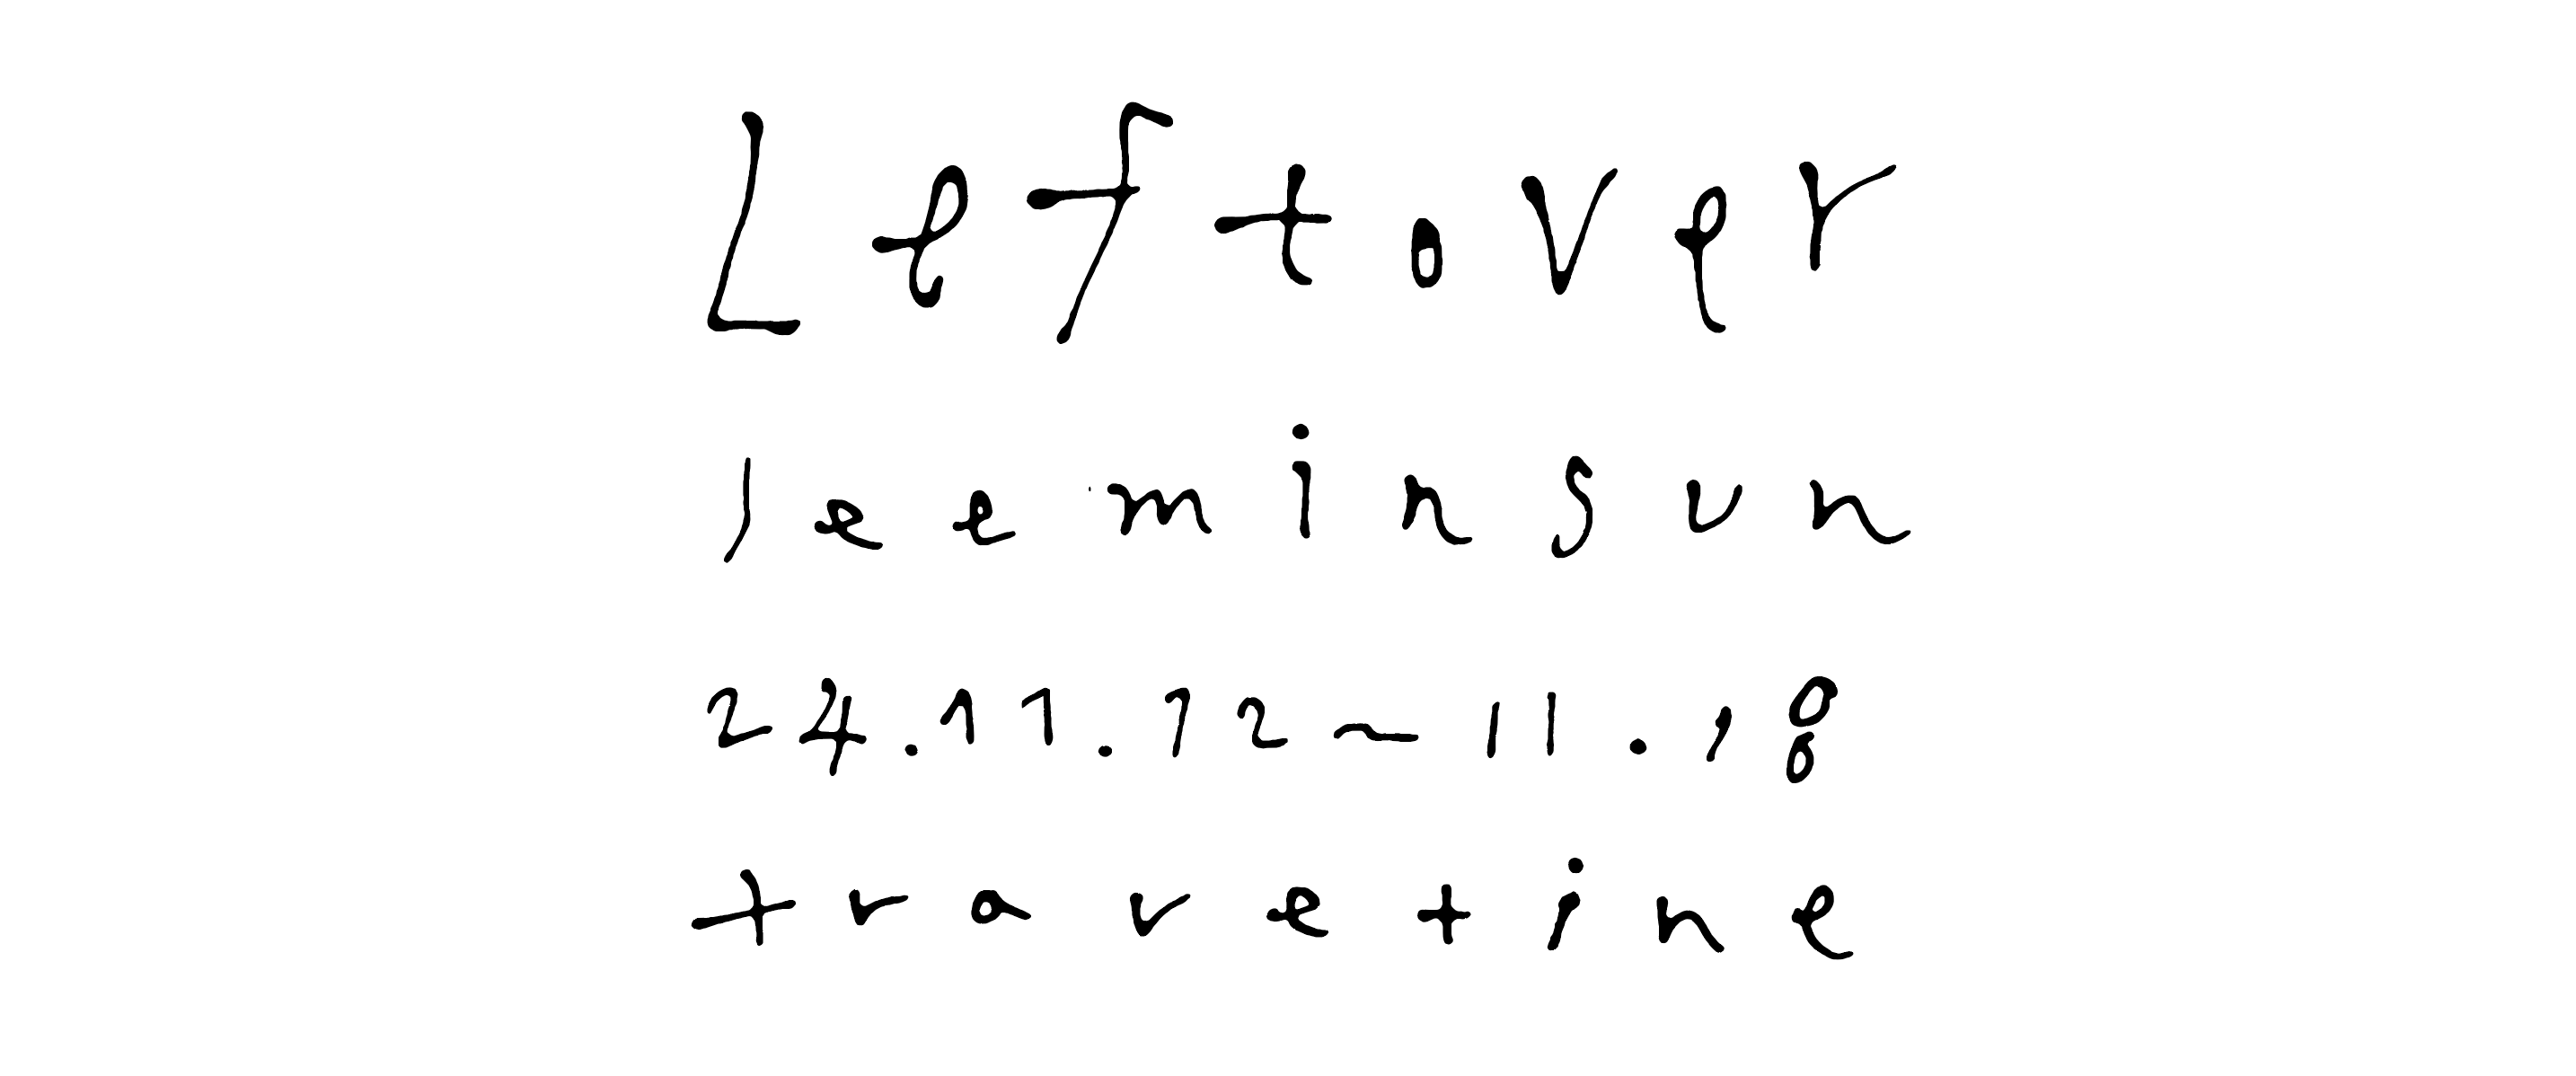 Leftover
leeminsun
24.11.12~11.18
travetine